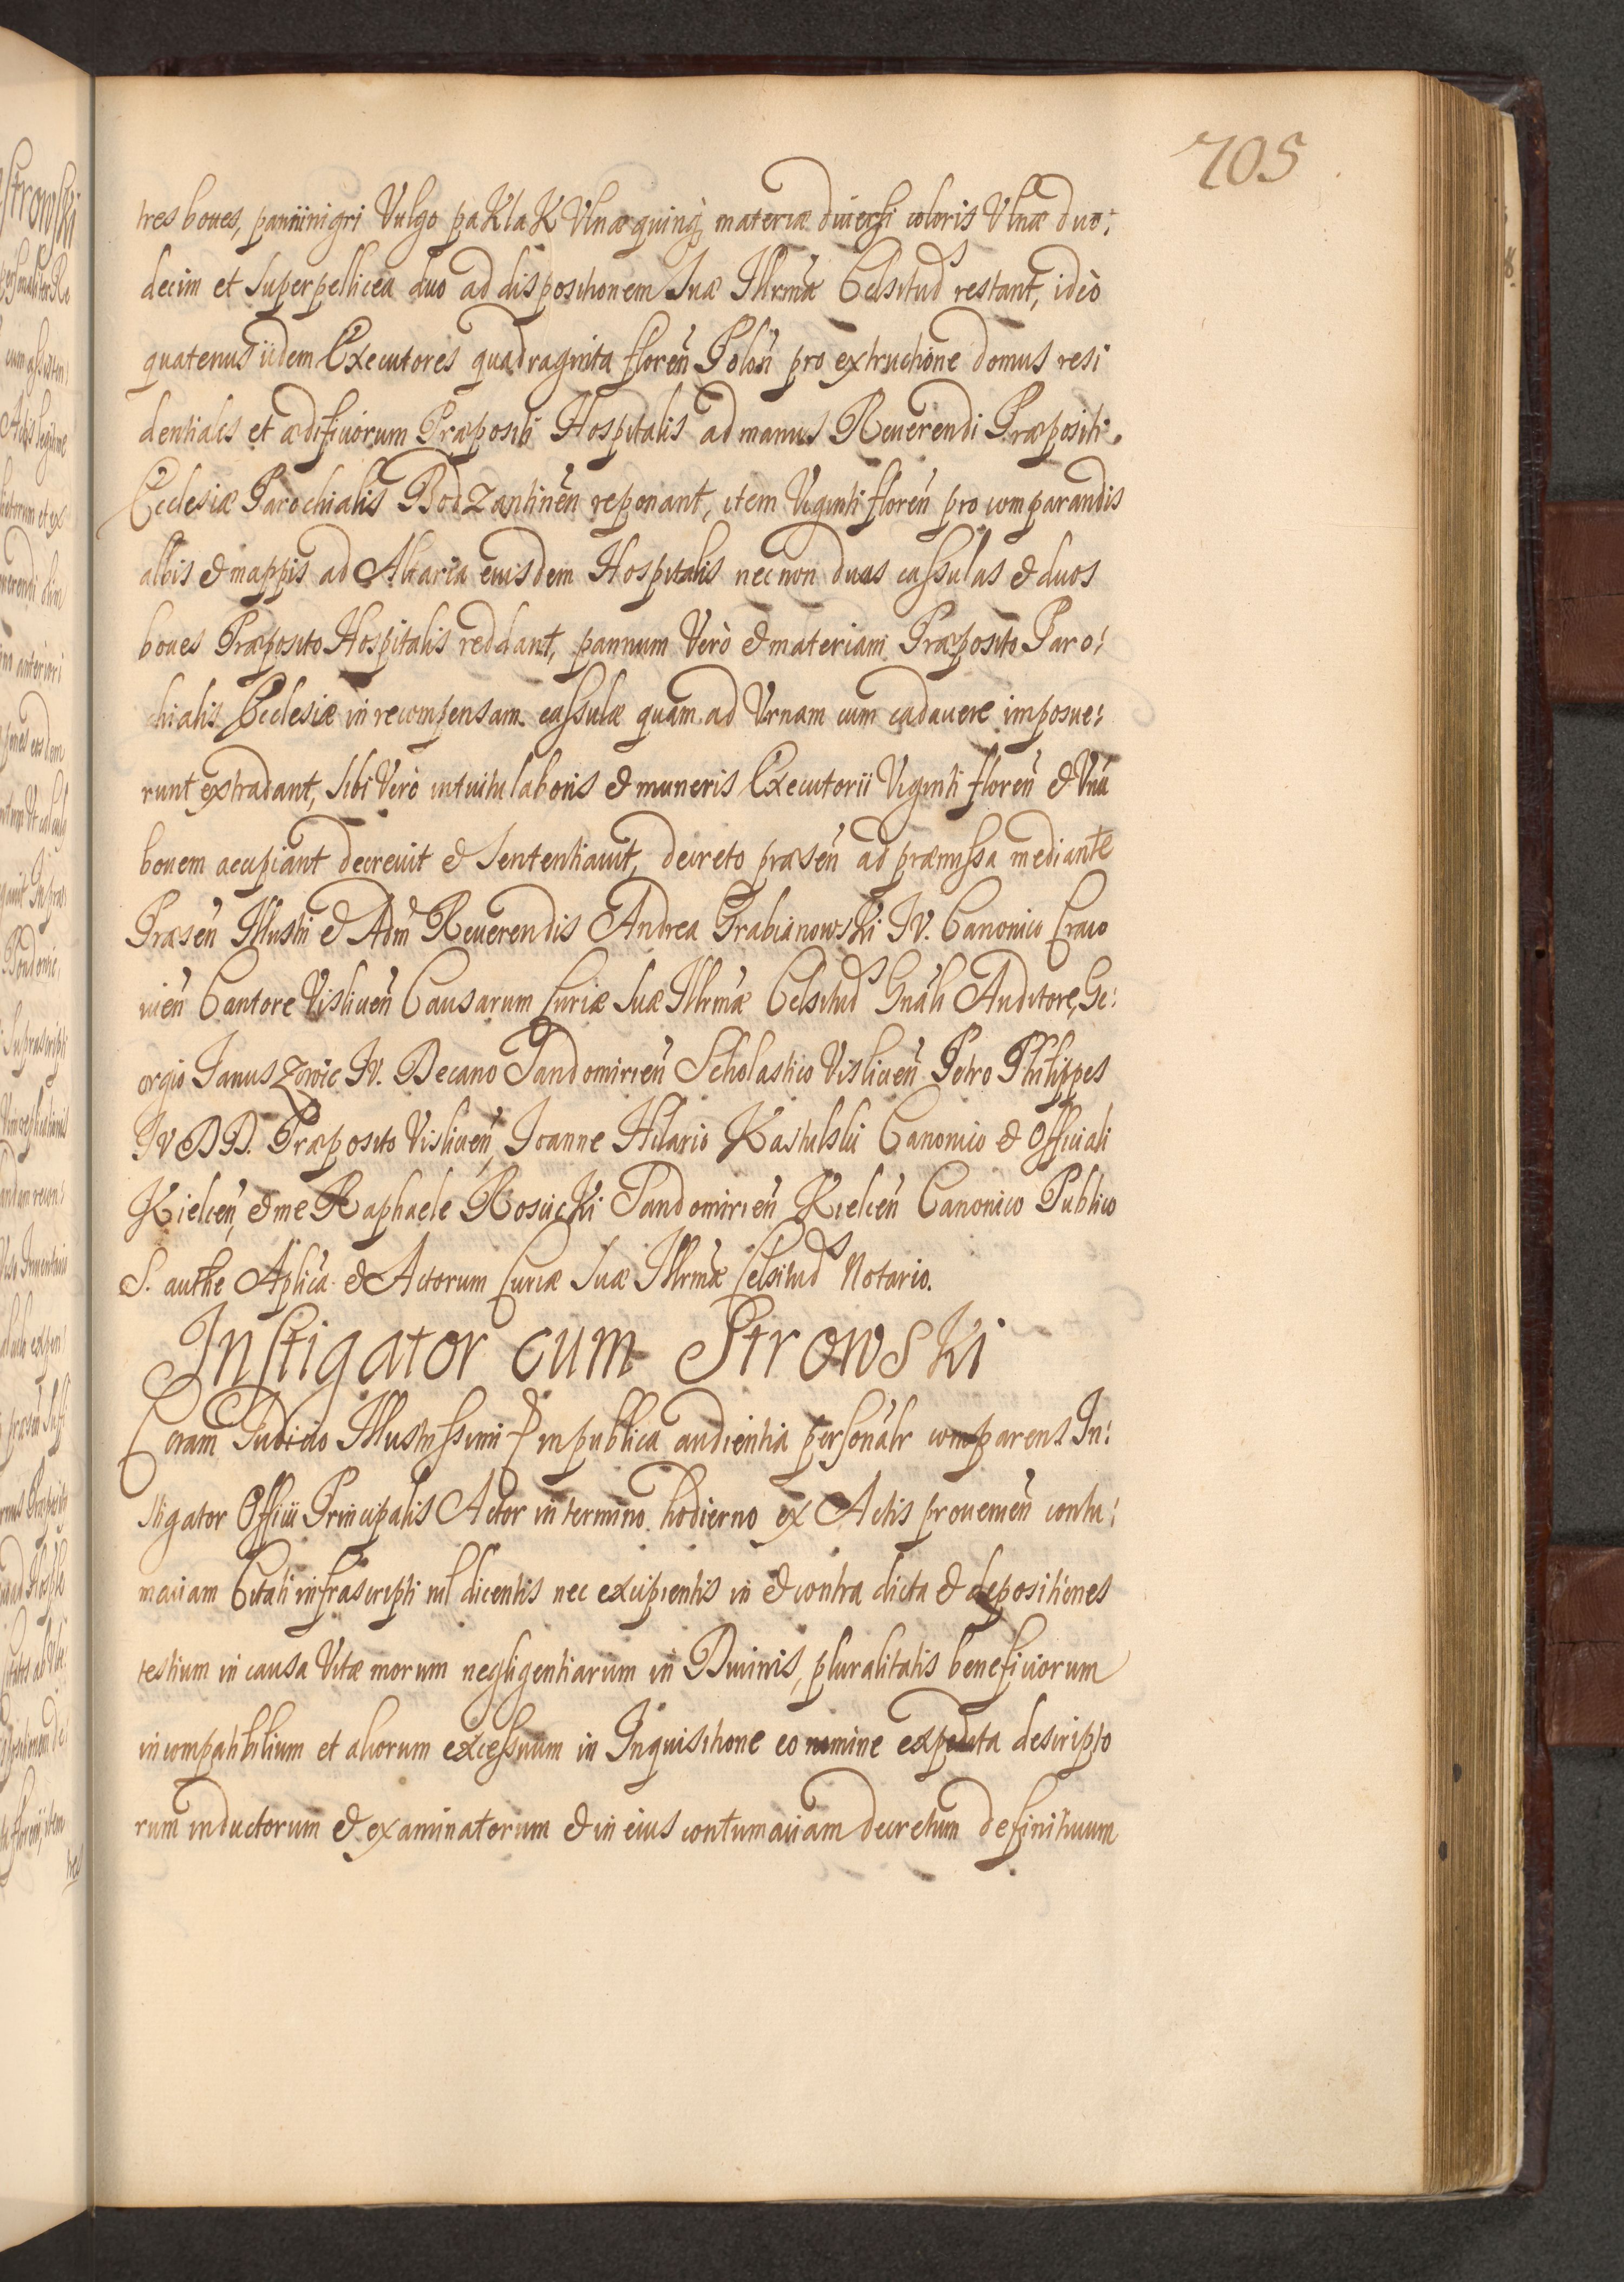 705
tres boues, panni nigri Vulgo paKlaK Vlnæ quinq, materiæ diuersi coloris Vlnæ duo:
decim et Superpellicea duo ad dispositionem Suæ Illrmæ Celsitud^s restant, ideò
quatenus iidem Executores quadraginta floreñ Poloñ pro extructione domus resi
dentiales et ædificiorum Præpositi Hospitalis ad manus Reuerendi Præpositi
Ecclesiæ Parochialis Bodzantineñ reponant, item Viginti floreñ pro comparandis
albis & mappis ad Altaria eiusdem Hospitalis nec non duas cassulas & duos
boues Præposito Hospitalis reddant, pannum Verò & materiam Præposito Paro:
chialis Ecclesiæ in recompensam cassulæ quam ad Vrnam cum cadauere imposue:
runt extradant, sibi Verò intuitu laboris & muneris Executorii Viginti floreñ & Vnũ
bouem accipiant decreuit & Sententiauit, decreto præseñ ad præmissa mediante
Præseñ Illustri & Adm̃ Reuerendis Andrea Grabianowski IV. Canonico Craco
uieñ Cantore Visliceñ Causarum Curiæ Suæ Illrmæ Celsitud^s Gnãli Auditore, Ge:
orgio Januszowic IV. Decano Sandomirieñ Scholastico Visliceñ Petro Philippes
IVDD. Præposito Visliceñ, Joanne Hilario Kastulski Canonico & Officiali
Kielceñ, & me Raphaele Rosicki Sandomirieñ Kielceñ Canonico Publico
S. authe Aplica & Actorum Curiæ Suæ Illrmæ Celsitud^s Notario.
Instigator cum Strowski
Coram Iudicio Illustrissimi & in publica audientia personalr comparens In:
stigator Officii Principalis Actor in termino hodierno ex Actis proueñieñ contu:
maciam Citati infrascripti nil dicentis nec excipientis in & contra dicta & depositiones
testium in causa Vitæ morum negligentiarum in Diuinis, pluralitatis beneficiorum
incompatibilium et aliorum excessuum in Inquisitione eo nomine expedita descripto
rum inductorum & examinatorum & in eius contumaciam decretum definitiuum